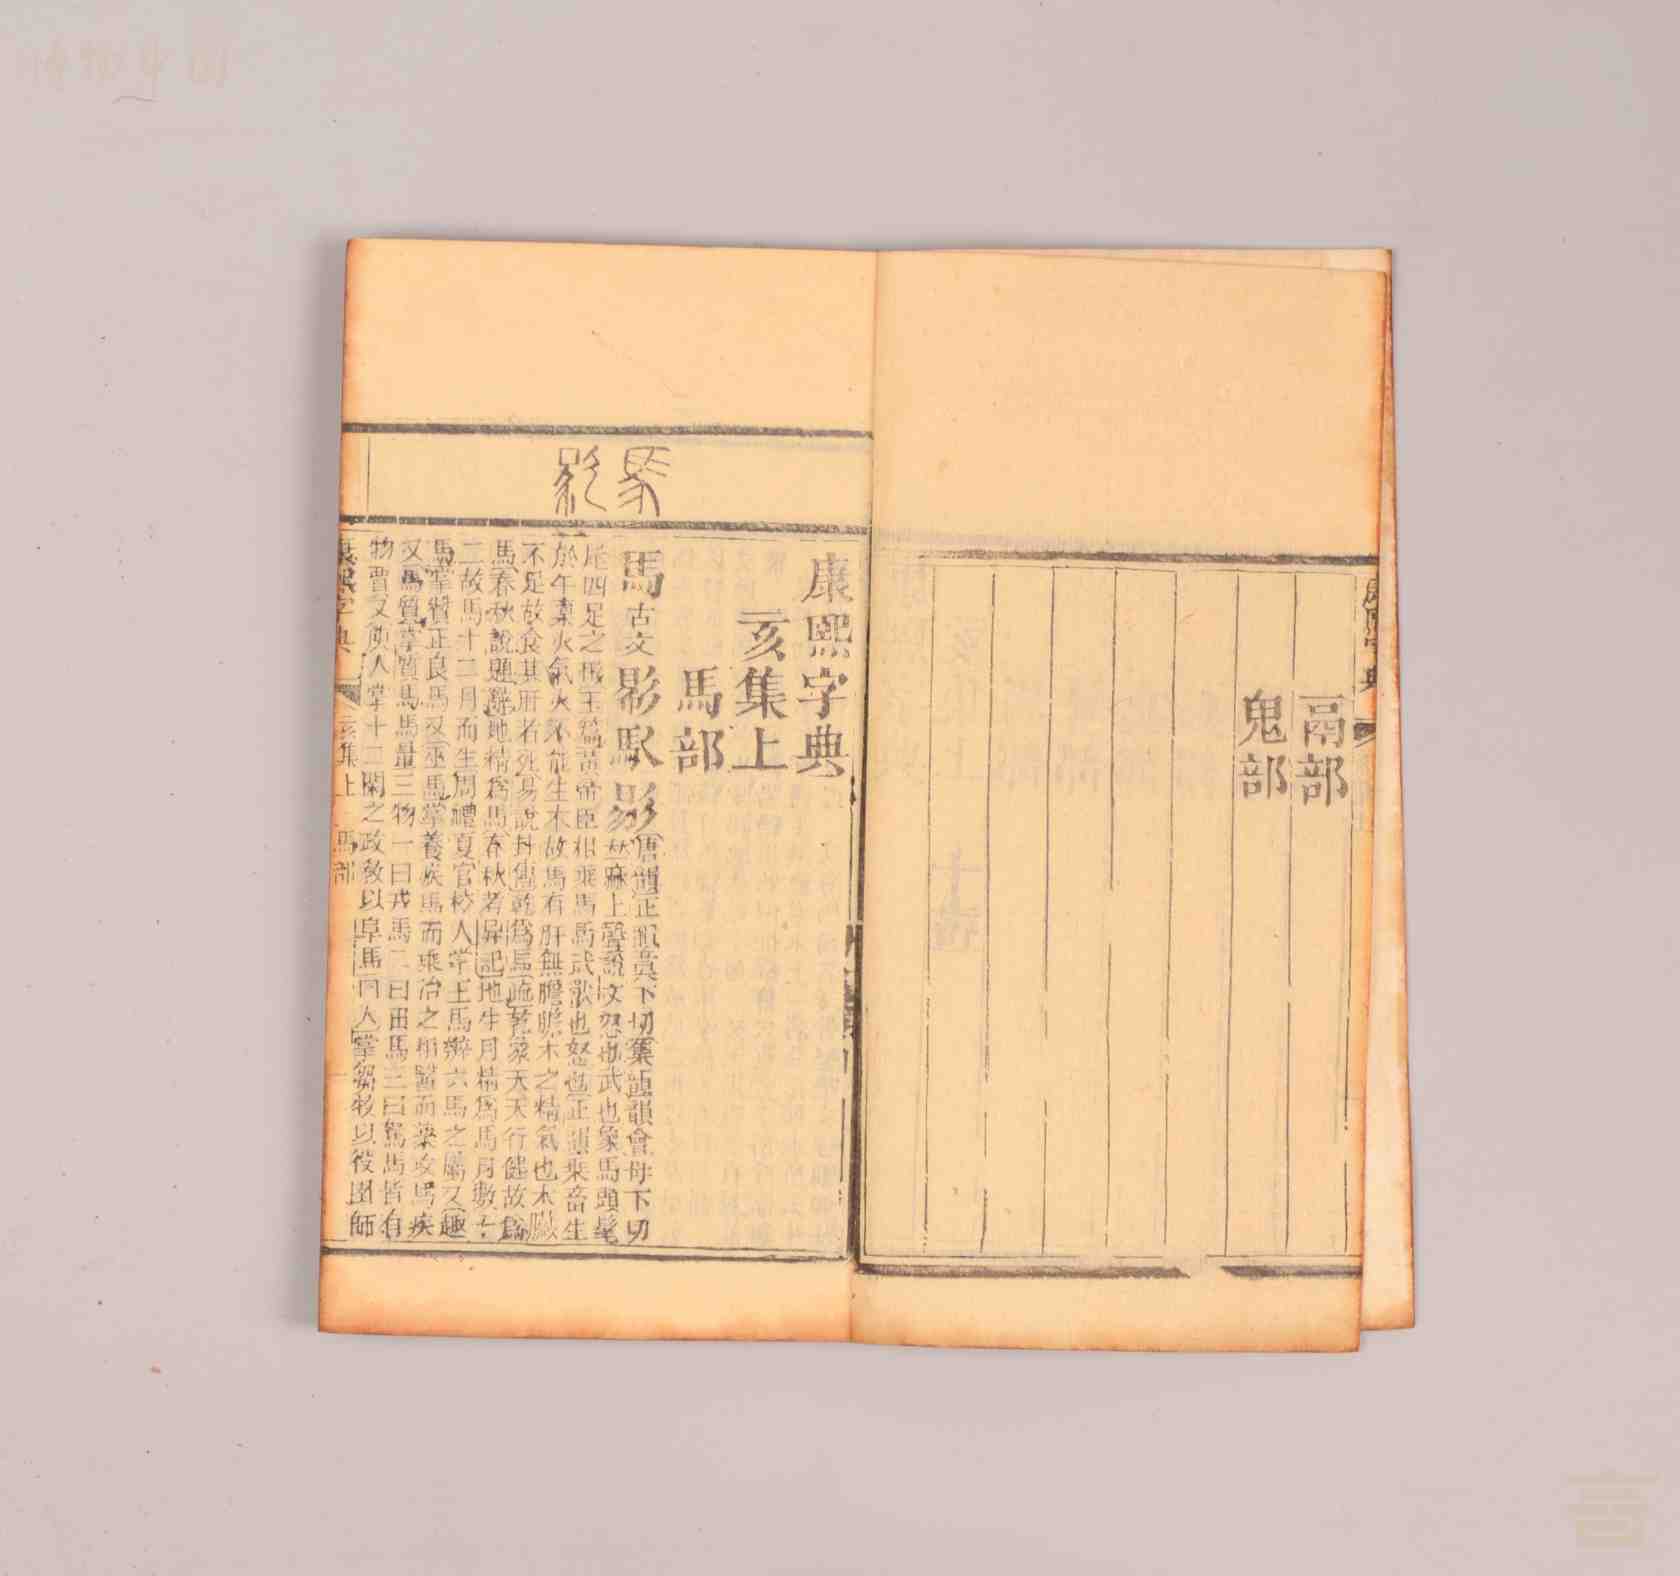 康熙字典
鬲部
鬼部
康熙字典
亥集上
馬部
馬古文
唐韻正韻莫下切集韻韻會母下切
𠀤麻上聲說文怒也武也象馬頭髦
尾四足之形玉篇黃帝臣相乘馬馬武獸也怒也正韻乘畜生
於午稟火氣火不能生木故馬有肝無膽膽木之精氣也木臟
不足故食其肝者死易說卦傳乾爲馬疏乾象天天行健故爲
馬春秋說題辭地精爲馬春秋考異記地生月精爲馬月數十
二故馬十二月而生周禮夏官校人掌王馬辨六馬之屬又趣
馬掌贊正良馬又巫馬掌養疾馬而乘治之相醫而藥攻馬疾
又馬質掌質馬馬量三物一曰戎馬二曰田馬三曰駑馬皆有
物賈又廋人掌十二閑之政敎以阜馬圉人掌芻牧以役圉師
康熙字典 亥集上 馬部